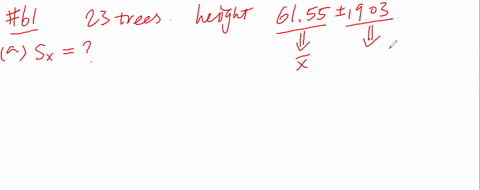 #61 23 trees. height 61.55 ± 1.903
(a) Sx = ? x̄